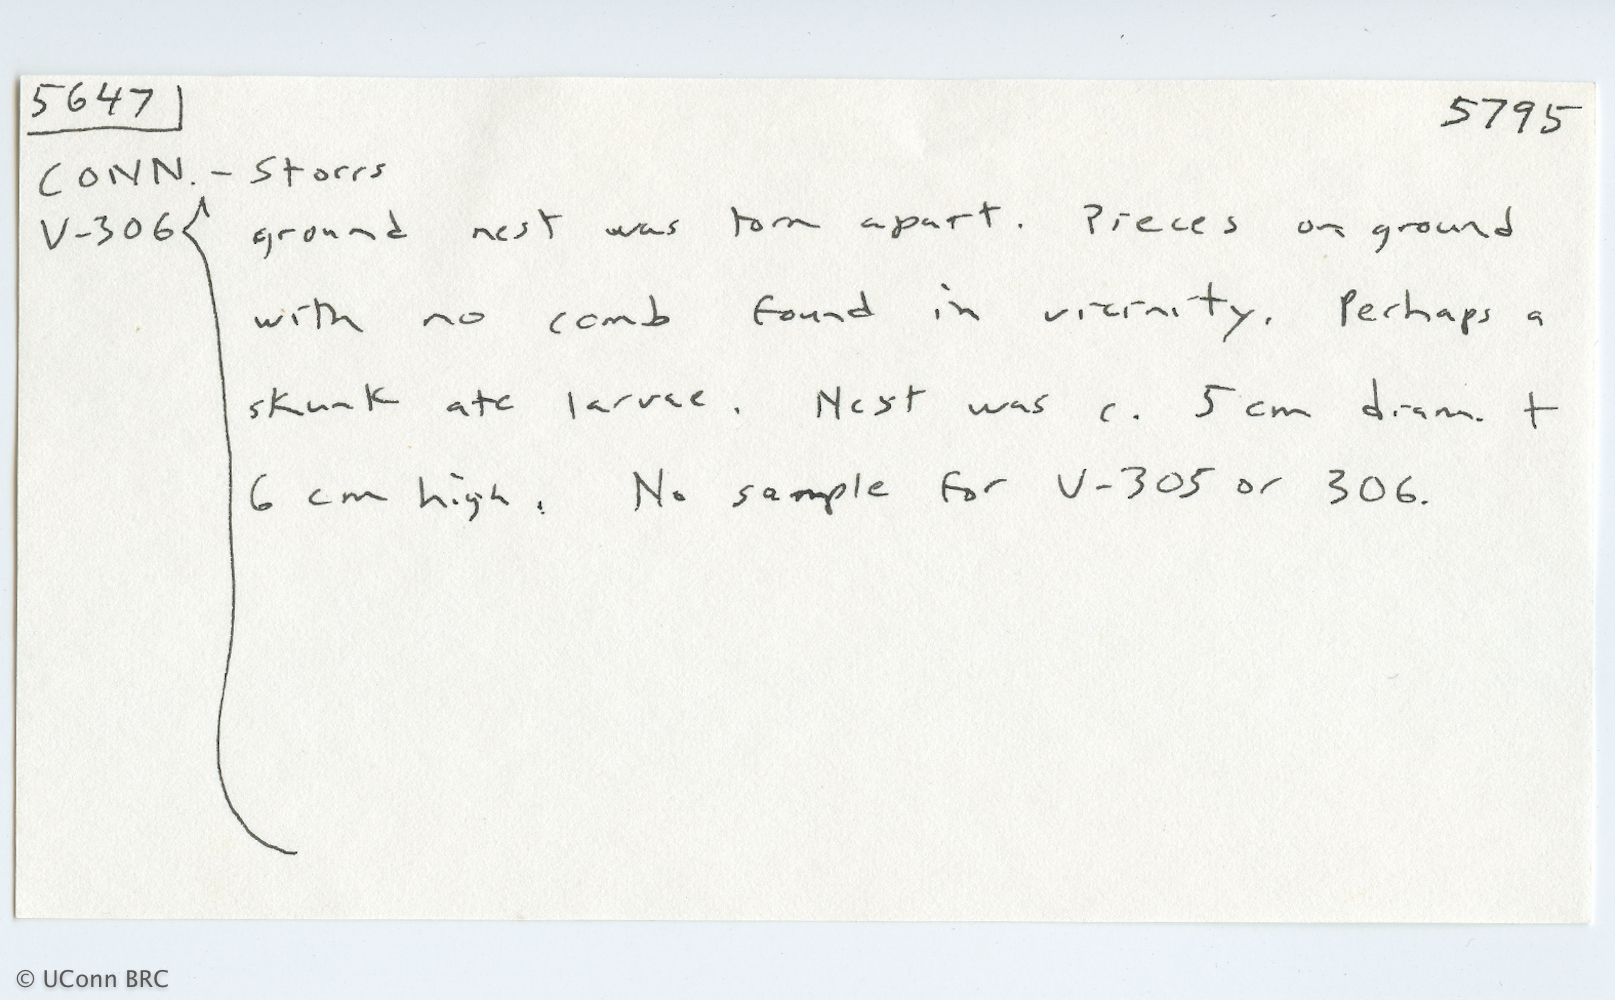 5647 5795
CONN. - Storrs
V-306 ground nest was torn apart. Pieces on ground
with no comb found in vicinity. Perhaps a
skunk ate larvae. Nest was c. 5 cm diam. +
6 cm high. No sample for V-305 or 306.
© UConn BRC